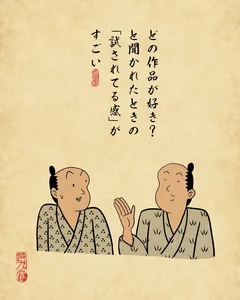 どの作品が好き?
と聞かれたときの
「試されてる感」が
すごい